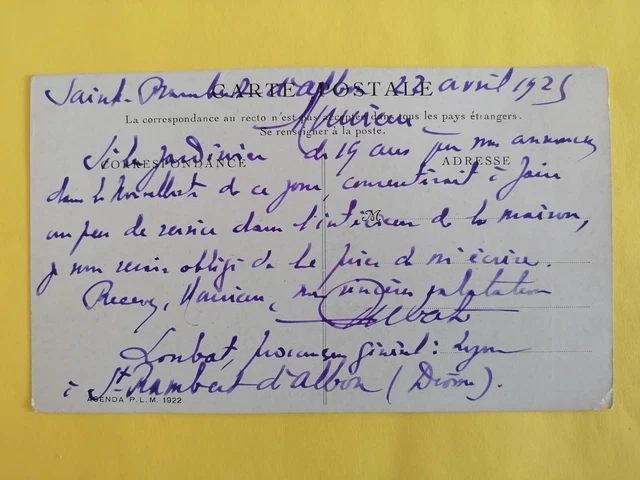 Saint-Rambert d'albon 22 avril 1925
CARTE POSTALE
La correspondance au recto n'est pas acceptée dans tous les pays étrangers.
Se renseigner à la poste.
Monsieur
CORRESPONDANCE
ADRESSE
Si le jardinier de 19 ans que vous annoncez
dans le Nouvelliste de ce jour, consentirait à faire
un peu de service dans l'intérieur de la maison,
M
je vous serais obligé de le prier de m'écrire.
Recevez, Monsieur, mes sincères salutations
Loubat
Loubat, procureur général : Lyon
à St Rambert d'albon (Drôme).
AGENDA P.L.M. 1922